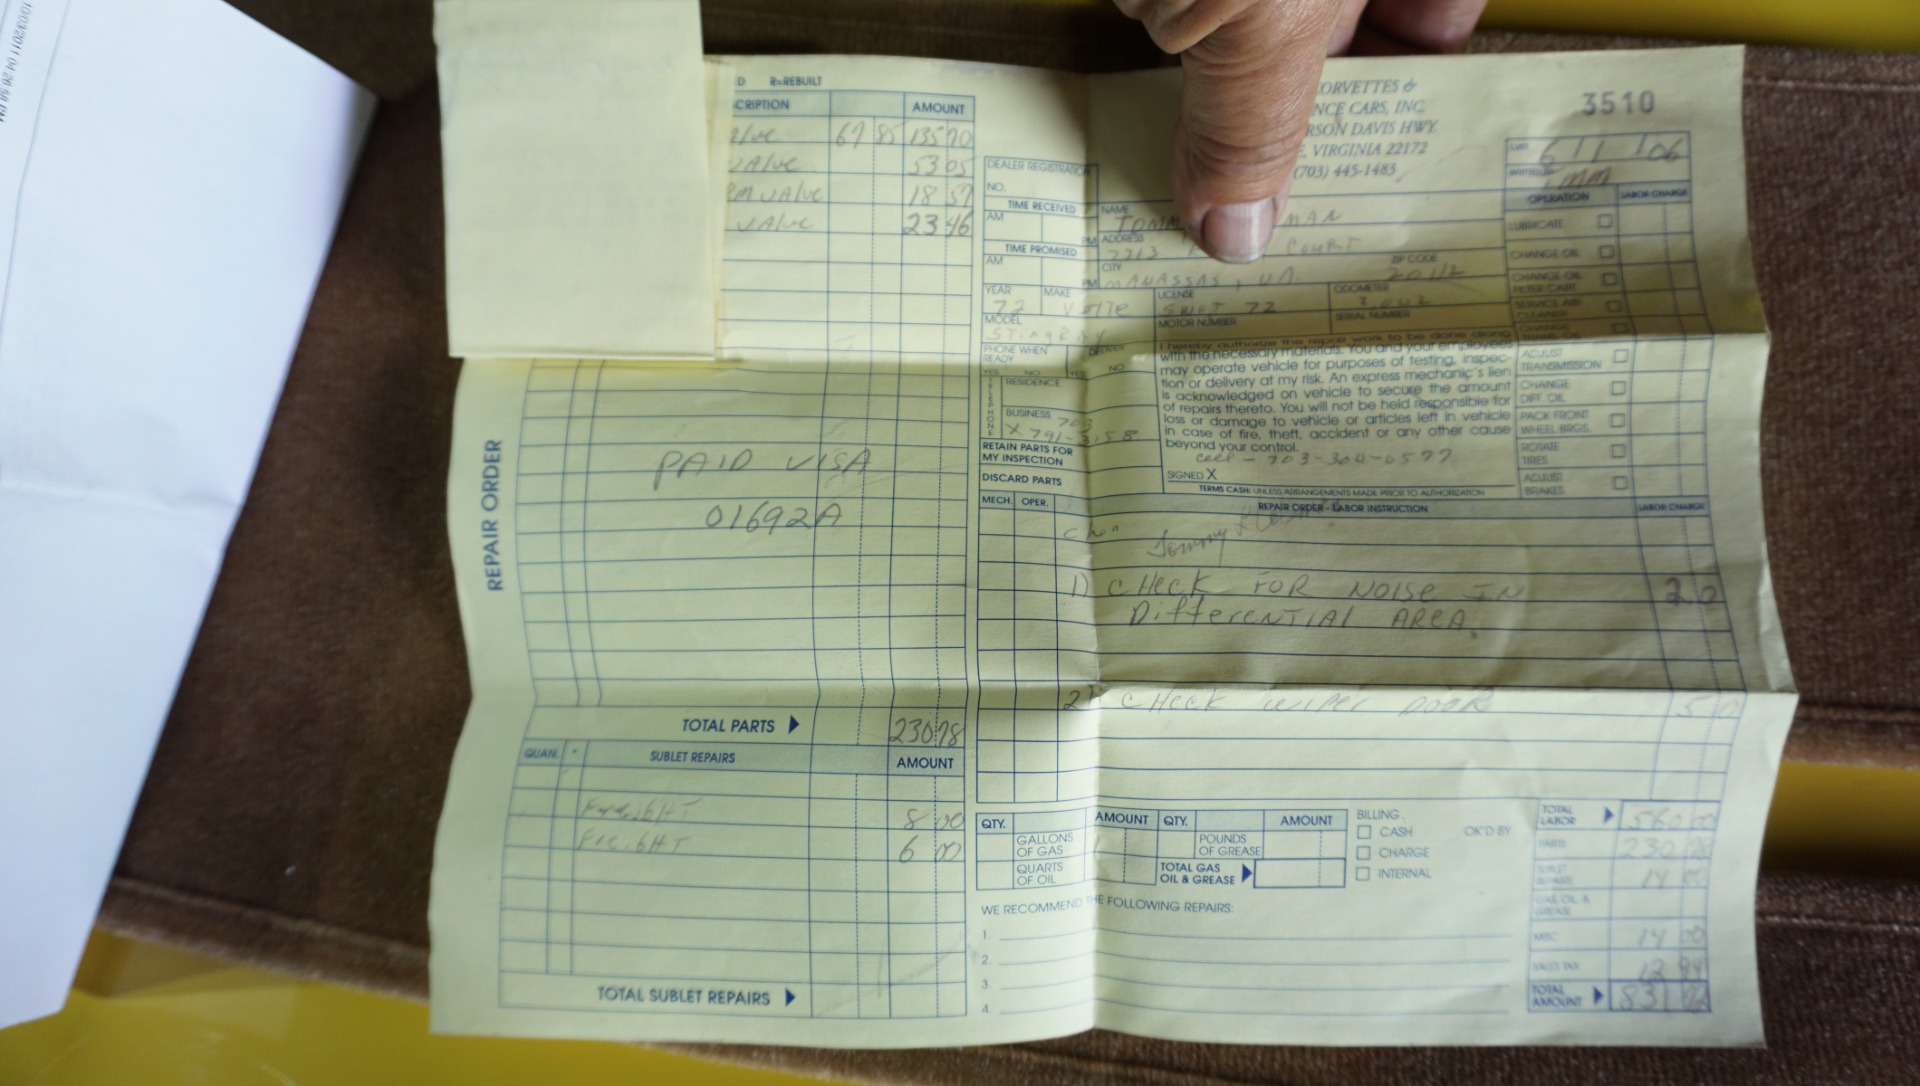 10/03/2011 04:26:50 PM
R=REBUILT
AMOUNT
alve 67 85 135 70
valve 53 05
valve 18 57
valve 23 46
REPAIR ORDER
PAID VISA
01692A
TOTAL PARTS 230 78
QUAN. SUBLET REPAIRS AMOUNT
Freight 8 00
Freight 6 00
TOTAL SUBLET REPAIRS
ORVETTES &
NCE CARS, INC.
RSON DAVIS HWY.
, VIRGINIA 22172
(703) 445-1483
3510
DATE 6 / 1 / 06
DEALER REGISTRATION
NO.
TIME RECEIVED
AM PM
TIME PROMISED
AM PM
NAME
TOMM MAN
ADDRESS
7713 COURT
CITY ZIP CODE
MANASSAS, VA.
YEAR MAKE LICENSE ODOMETER
72 Vette 72
MODEL MOTOR NUMBER SERIAL NUMBER
StingRay
PHONE WHEN READY
YES NO YES NO
RESIDENCE
BUSINESS 703
X 791-3158
RETAIN PARTS FOR
MY INSPECTION
DISCARD PARTS
I hereby authorize the repair work to be done along
with the necessary materials. You and your employees
may operate vehicle for purposes of testing, inspec-
tion or delivery at my risk. An express mechanic's lien
is acknowledged on vehicle to secure the amount
of repairs thereto. You will not be held responsible for
loss or damage to vehicle or articles left in vehicle
in case of fire, theft, accident or any other cause
beyond your control.
cell - 703-304-0577
SIGNED X
TERMS CASH: UNLESS ARRANGEMENTS MADE PRIOR TO AUTHORIZATION
OPERATION LABOR CHARGE
LUBRICATE
CHANGE OIL
CHANGE OIL
FILTER CART.
SERVICE AIR
CLEANER
ADJUST
TRANSMISSION
CHANGE
DIFF. OIL
PACK FRONT
WHEEL BRGS.
ROTATE
TIRES
ADJUST
BRAKES
MECH. OPER. REPAIR ORDER - LABOR INSTRUCTION LABOR CHARGE
Tommy
1) CHECK FOR NOISE IN 2 0
Differential AREA.
2) CHeck wiper DOOR 5 0
QTY. AMOUNT QTY. AMOUNT
GALLONS OF GAS
POUNDS OF GREASE
QUARTS OF OIL
TOTAL GAS OIL & GREASE
BILLING
CASH OK'D BY
CHARGE
INTERNAL
WE RECOMMEND THE FOLLOWING REPAIRS:
1.
2.
3.
4.
TOTAL LABOR 560 00
PARTS 230 78
SUBLET REPAIRS 14 00
GAS, OIL & GREASE
MISC 14 00
SALES TAX 12 94
TOTAL AMOUNT 831 72